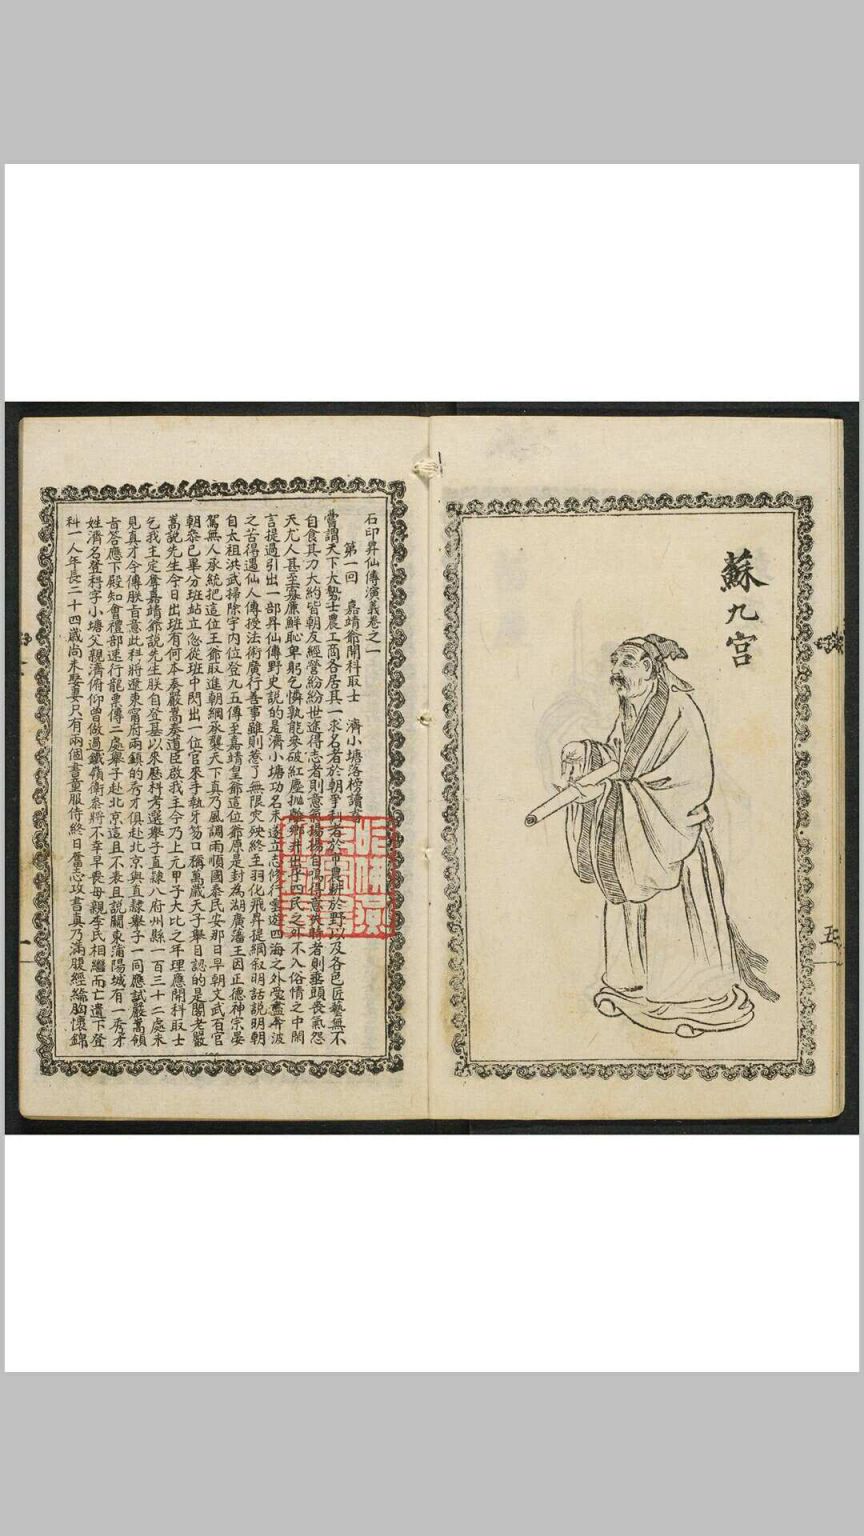 蘇九宮
五
石印昇仙傳演義卷之一
第一回 嘉靖爺開科取士 濟小塘落榜讀書
嘗謂天下大勢士農工商各居其一求名者於朝爭利者於市農耕於野以及各色匠藝無不
自食其力大約皆朝友經營紛紛世途得志者則意氣揚揚自鳴得意失時者則垂頭喪氣怨
天尤人甚至寡廉鮮恥卑躬乞憐孰能參破紅塵拋離鄉井出乎四民之外不入俗情之中閒
言提過引出一部昇仙傳野史說的是濟小塘功名未遂立志修行雲遊四海之外受盡奔波
之苦得遇仙人傳授法術廣行善事雖則惹了無限災殃終至羽化飛昇提綱叙明話說明朝
自太祖洪武掃除宇內位登九五傳至嘉靖皇爺這位爺原是封為湖廣藩王因正德神宗晏
駕無人承統把這位王爺取進朝綱承襲天下真乃風調雨順國泰民安那日早朝文武百官
朝叅已畢分班站立忽從班中閃出一位官來手執牙笏口稱萬歲天子舉目認的是閣老嚴
嵩說先生今日出班有何本奏嚴嵩奏道臣啟我主今乃上元甲子大比之年理應開科取士
乞我主定奪嘉靖爺說先生朕自登基以來歷科考選舉子直隸八府州縣一百三十二處未
見真才今傳朕旨意此科將遼東甯府兩鎮的秀才俱赴北京與直隸舉子一同應試嚴嵩領
旨答應下殿知會禮部速行龍票傳二處舉子赴北京這且不表且說關東蒲陽城有一秀才
姓濟名登科字小塘父親濟俯仰曾做過鐵嶺衛叅將不幸早喪母親李氏相繼而亡遺下登
科一人年長二十四歲尚未娶妻只有兩個書童服侍終日奮志攻書真乃滿腹經綸胸懷錦
一